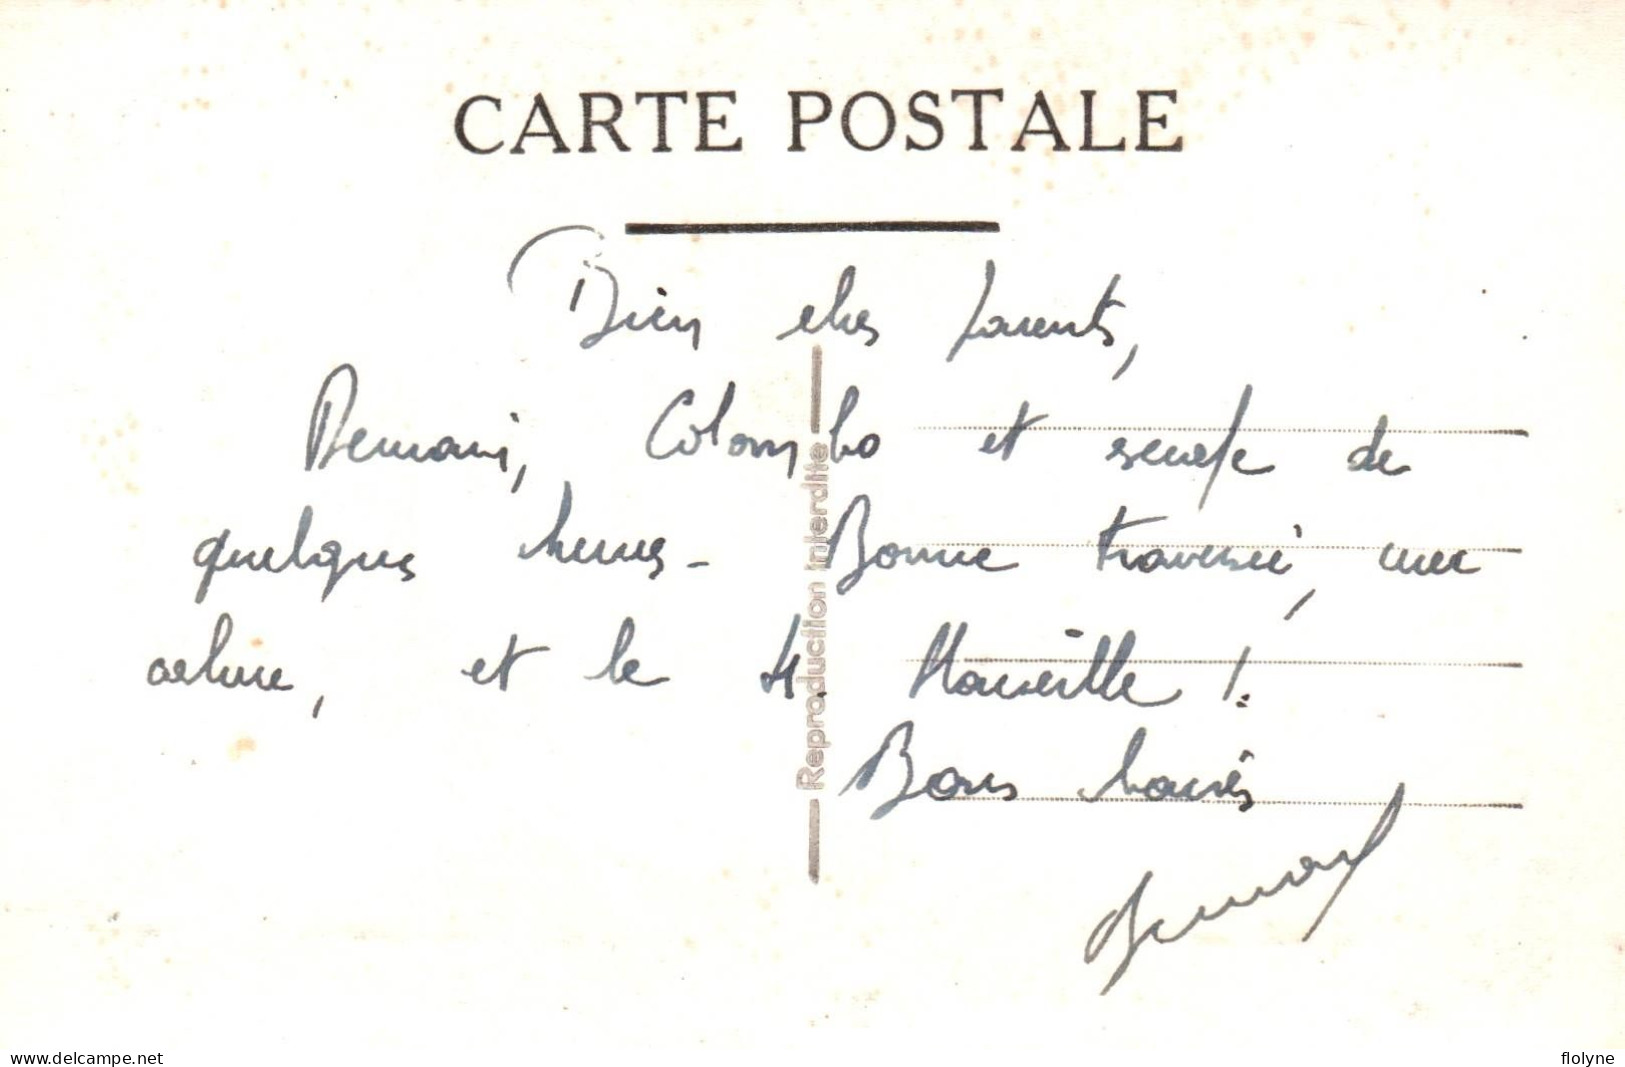 CARTE POSTALE
Bien chers parents,
Demain, Colombo et escale de
quelques heures - Bonne traversée, mer
calme, et le 4. Marseille !
Bons baisers
Bernard
Reproduction interdite
www.delcampe.net
flolyne